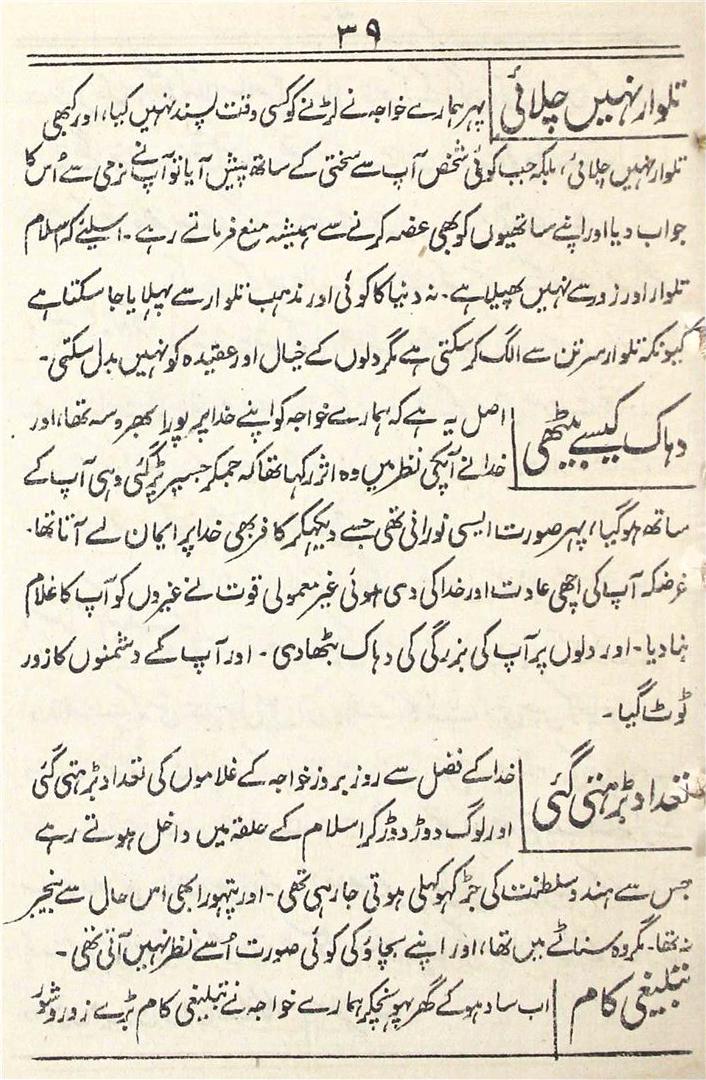 ۳۹
تلوار نہیں چلائی
پہر ہمارے خواجہ نے لڑنے کو کسی وقت پسند نہیں کیا، اور کبھی
تلوار نہیں چلائی، بلکہ جب کوئی شخص آپ سے سختی کے ساتھ پیش آیا تو آپ نے نرمی سے اُس کا
جواب دیا اور اپنے ساتھیوں کو بھی غصہ کرنے سے ہمیشہ منع فرماتے رہے ۔ اسلئے کہ اسلام
تلوار اور زور سے نہیں پھیلا ہے ۔ نہ دنیا کا کوئی اور مذہب تلوار سے پہلایا جا سکتا ہے
کیونکہ تلوار سر تن سے الگ کر سکتی ہے مگر دلوں کے خیال اور عقیدہ کو نہیں بدل سکتی ۔
دہاک کیسے بیٹھی
اصل یہ ہے کہ ہمارے خواجہ کو اپنے خدا پر پورا بھروسہ تھا، اور
خدا نے آپکی نظر میں وہ اثر رکہا تھا کہ جمکر جسپر پڑ گئی وہی آپ کے
ساتھ ہو گیا، پہر صورت ایسی نورانی تھی جسے دیکہکر کافر بھی خدا پر ایمان لے آتا تھا ۔
غرضکہ آپ کی اچھی عادت اور خدا کی دی ہوئی غیر معمولی قوت نے غیروں کو آپ کا غلام
بنا دیا ۔ اور دلوں پر آپ کی بزرگی کی دہاک بٹھا دی ۔ اور آپ کے دشمنوں کا زور
ٹوٹ گیا ۔
تعداد بڑہتی گئی
خدا کے فضل سے روز بروز خواجہ کے غلاموں کی تعداد بڑہتی گئی
اور لوگ دوڑ دوڑ کر اسلام کے حلقہ میں داخل ہوتے رہے
جس سے ہندو سلطنت کی جڑ کہوکہلی ہوتی جا رہی تھی ۔ اور پتہورا بھی اس حال سے بیخبر
نہ تھا ۔ مگر وہ سناٹے میں تھا، اور اپنے بچاؤ کی کوئی صورت اُسے نظر نہیں آتی تھی ۔
تبلیغی کام
اب سادہو کے گھر پہونچکر ہمارے خواجہ نے تبلیغی کام بڑے زور و شور